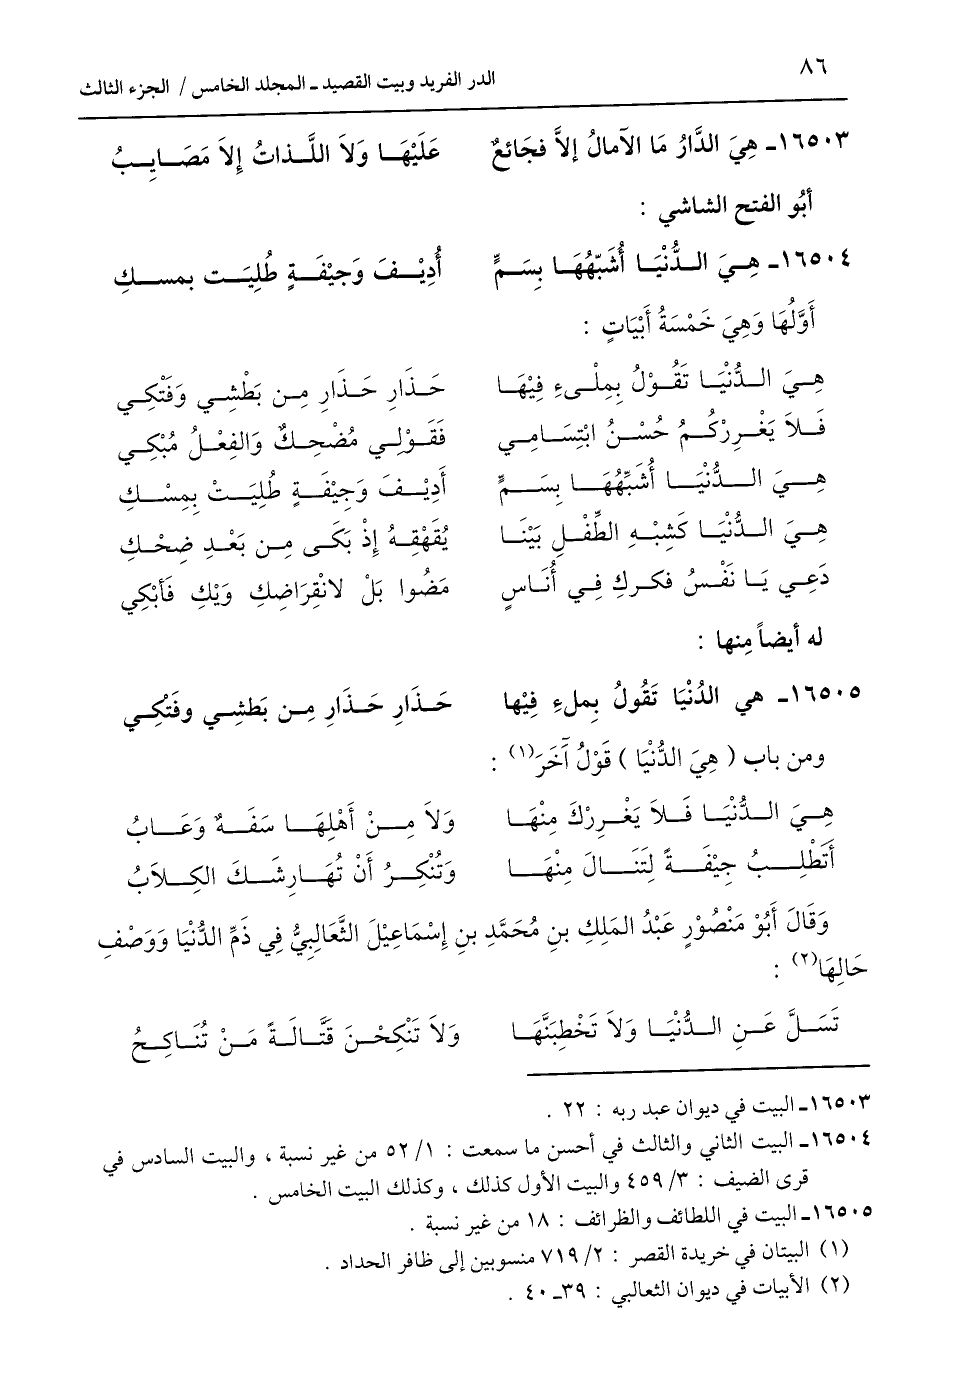 ٨٦
الدر الفريد وبيت القصيد ـ المجلد الخامس / الجزء الثالث
١٦٥٠٣ـ هِيَ الدَّارُ مَا الآمَالُ إلاَّ فجَائعٌ عَلَيْهَا وَلاَ اللَّذاتُ إلاَ مَصَايِبُ
أبُو الفتح الشاشي :
١٦٥٠٤ـ هِيَ الدُّنْيَا أُشَبِّهُهَا بِسَمٍّ أُدِيْفَ وَجِيْفَةٍ طُلِيَت بمسكِ
أوَّلُهَا وَهِيَ خَمْسَةُ أبْيَاتٍ :
هِيَ الدُّنْيَا تَقُوْلُ بِمِلْىءِ فِيْهَا حَذَارِ حَذَارِ مِن بَطْشِي وَفَتْكِي
فَلاَ يَغْرِرْكُمُ حُسْنُ ابْتِسَامِي فَقَوْلِي مُضْحِكٌ وَالفِعْلُ مُبْكِي
هِيَ الدُّنْيَا أُشَبِّهُهَا بِسَمٍّ أُدِيْفَ وَجِيْفَةٍ طُلِيَتْ بِمِسْكِ
هِيَ الدُّنْيَا كَشِبْهِ الطِّفْلِ بَيْنَا يُقَهْقِهُ إذْ بَكَى مِن بَعْدِ ضِحْكِ
دَعِي يَا نَفْسُ فكركِ فِي أُنَاسٍ مَضُوا بَلْ لانْقِرَاضِكِ وَيْكِ فَأبْكِي
له أيضاً مِنها :
١٦٥٠٥ـ هي الدُنْيَا تَقُولُ بِملءِ فِيْها حَذَارِ حَذَارِ مِن بَطشِي وفَتْكِي
ومن باب ( هِيَ الدُّنْيَا ) قَوْلُ آخَرَ(١) :
هِيَ الدُّنْيَا فَلاَ يَغْرِرْكَ مِنْهَا وَلاَ مِنْ أهْلِهَا سَفَهٌ وَعَابُ
أتَطْلِبُ جِيْفَةً لِتَنَالَ مِنْهَا وَتُنْكِرُ أنْ تُهَارِشَكَ الكِلاَبُ
وَقَالَ أبُوْ مَنْصُوْرٍ عَبْدُ المَلِكِ بنِ مُحَمَّدِ بنِ إسْمَاعِيْلَ الثَّعَالِبيُّ فِي ذَمِّ الدُّنْيَا وَوَصْفِ
حَالِهَا(٢) :
تَسَلَّ عَنِ الدُّنْيَا وَلاَ تَخْطِبَنَّهَا وَلاَ تَنْكِحْنَ قَتَّالَةً مَنْ تُنَاكِحُ
١٦٥٠٣ـ البيت في ديوان عبد ربه : ٢٢ .
١٦٥٠٤ـ البيت الثاني والثالث في أحسن ما سمعت : ١/ ٥٢ من غير نسبة ، والبيت السادس في
قرى الضيف : ٣/ ٤٥٩ والبيت الأول كذلك ، وكذلك البيت الخامس .
١٦٥٠٥ـ البيت في اللطائف والظرائف : ١٨ من غير نسبة .
(١) البيتان في خريدة القصر : ٢/ ٧١٩ منسوبين إلى ظافر الحداد .
(٢) الأبيات في ديوان الثعالبي : ٣٩ـ ٤٠ .